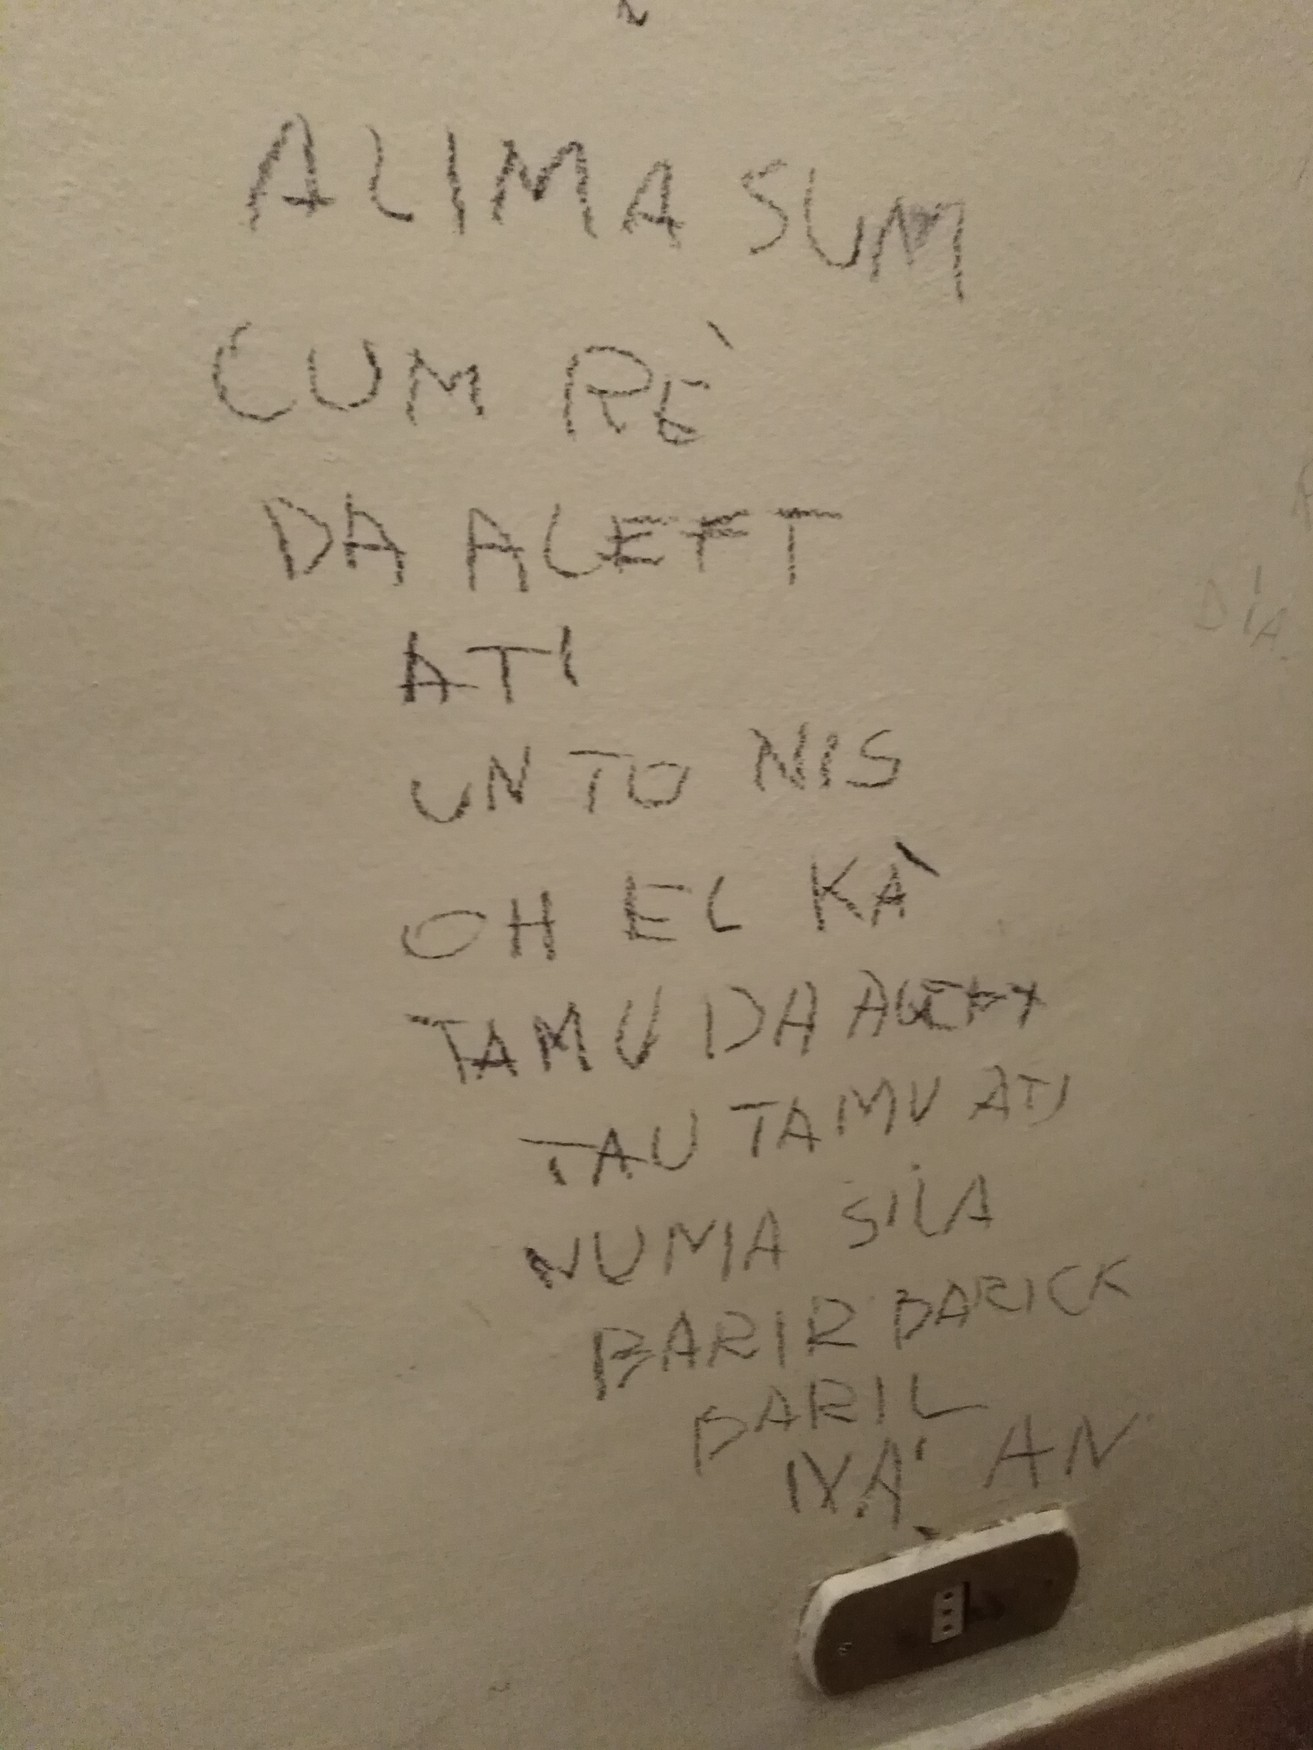 ALIMA SUM
CUM RÈ
DA ALEFT
ATI
UN TO NIS
OH EL KÀ
TAMU DA ALEFT
TAU TAMU ATI
NUMA SILA
BARIR BARICK
BARIL
IVA' AN
DIA